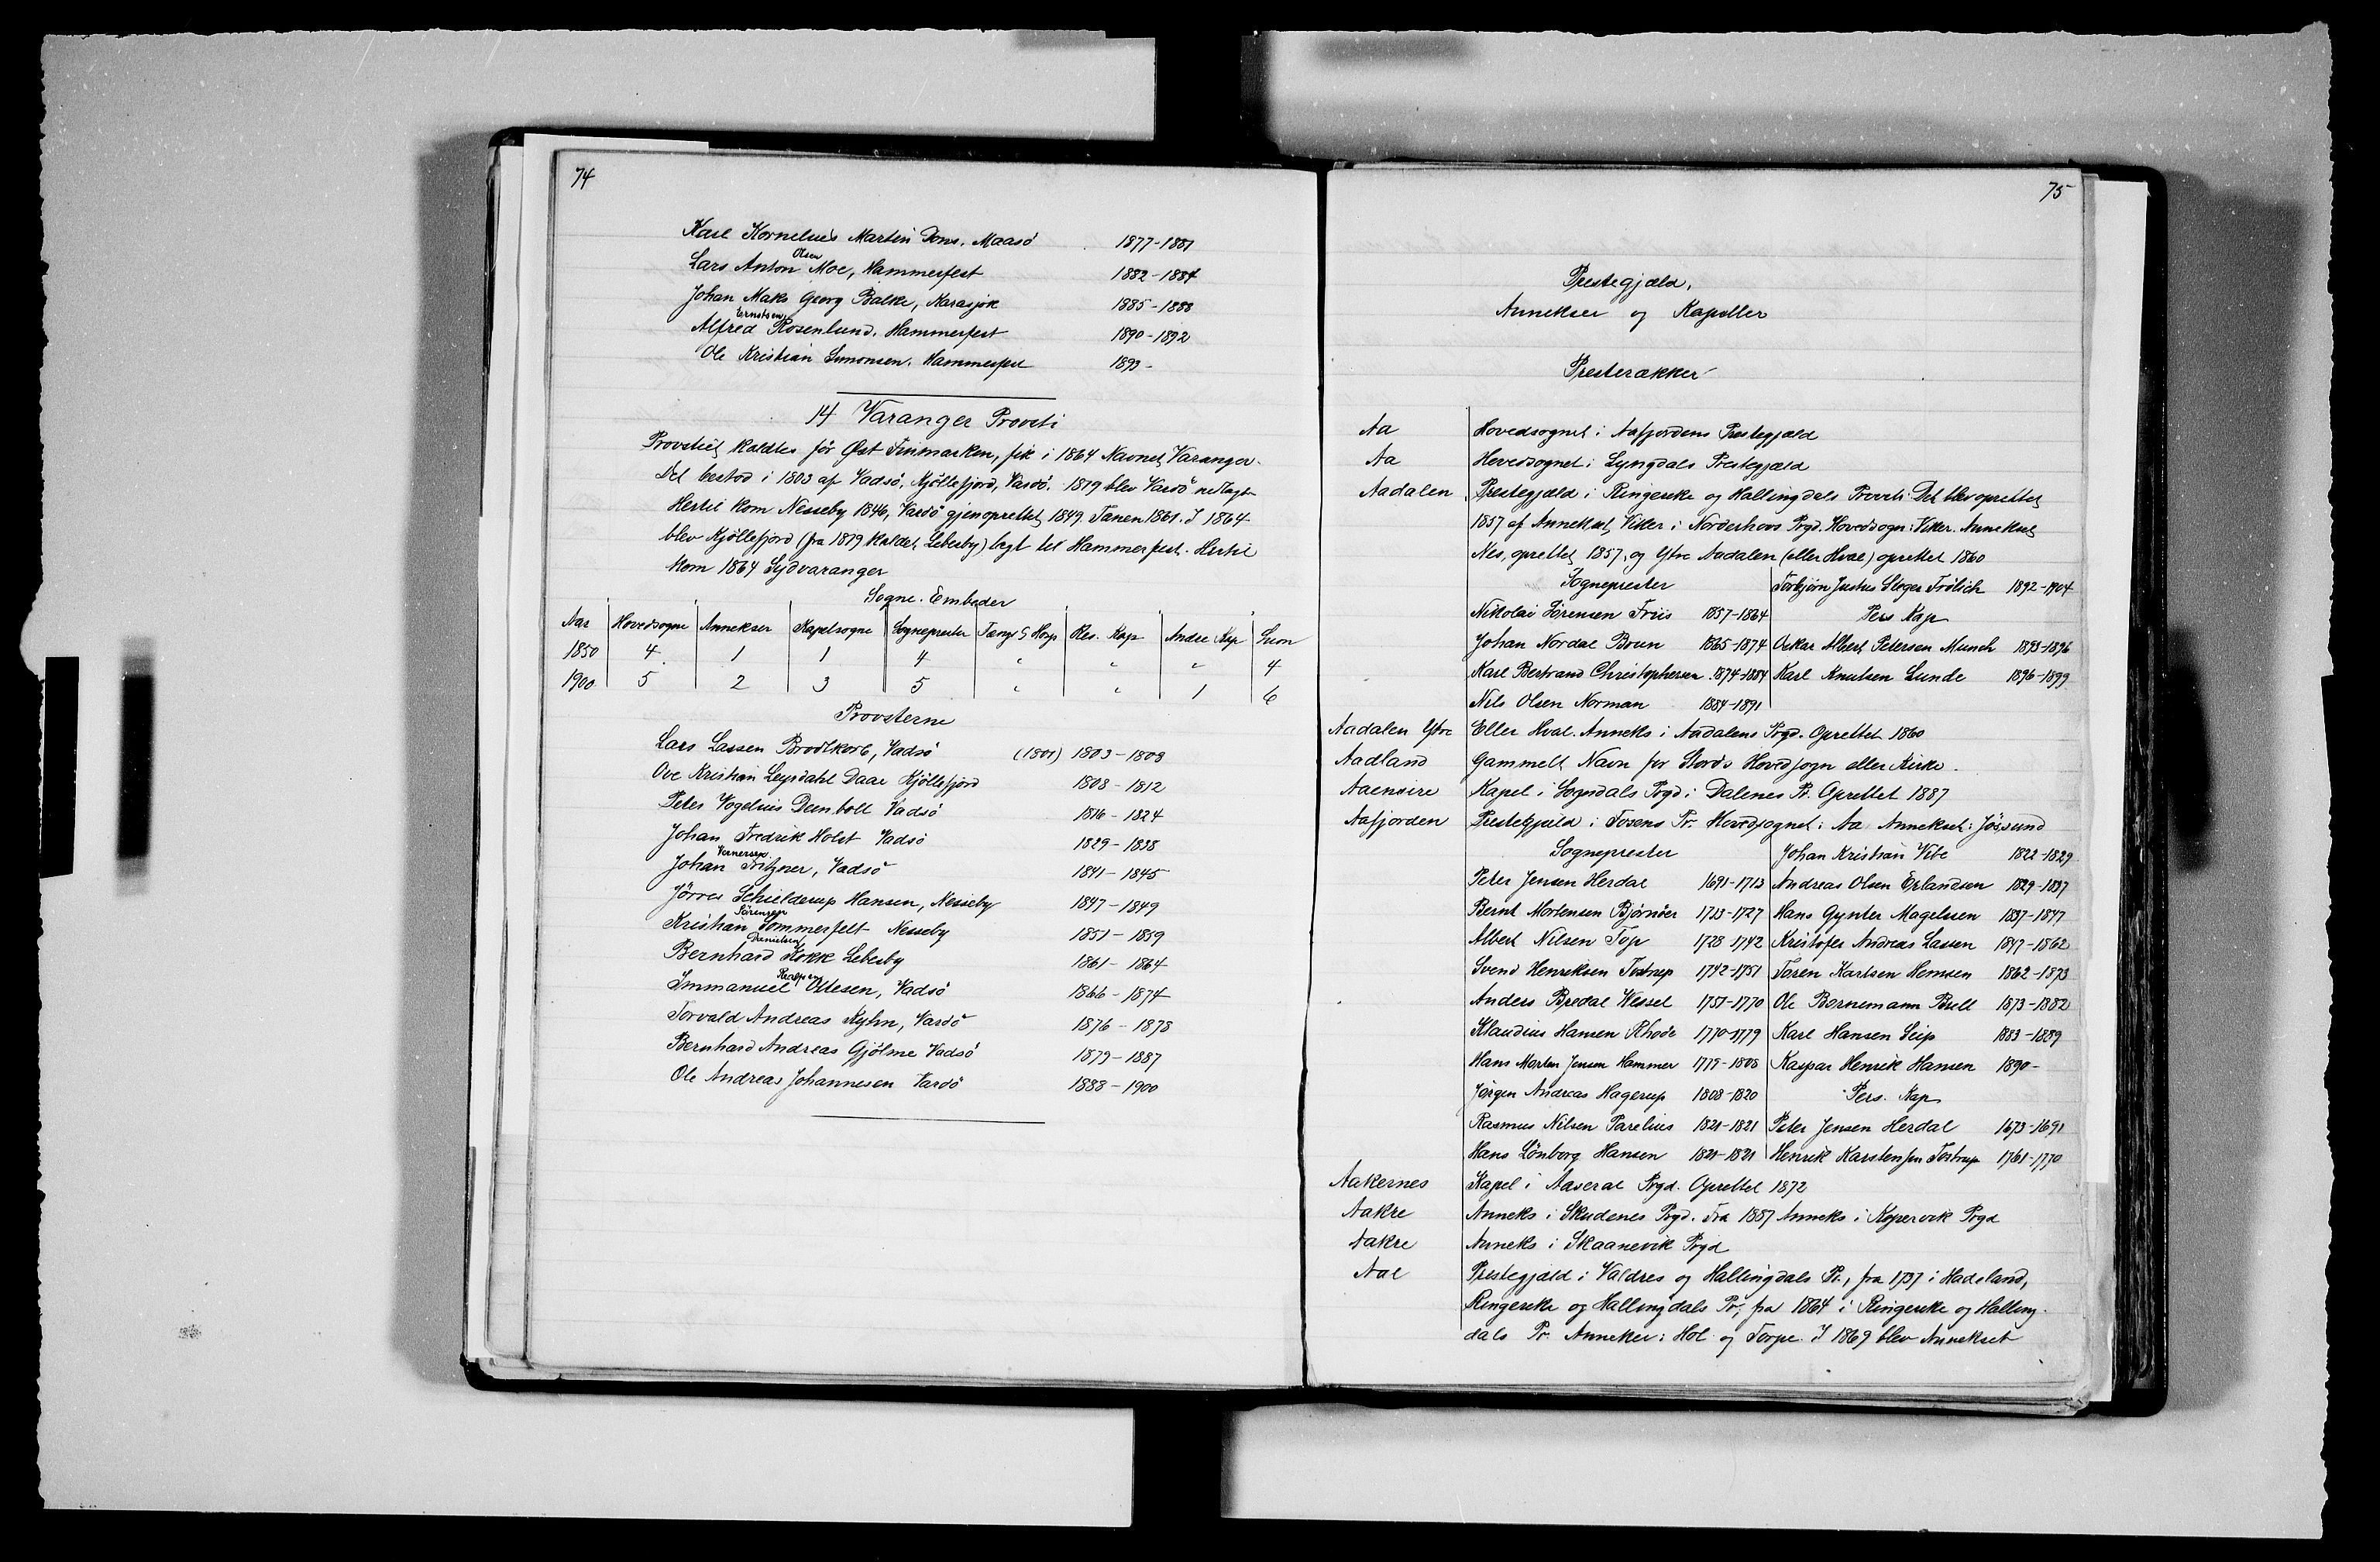 74
Karl Kornelius Martin Dons. Maasö 1877-1881
Lars Anton Olsen Moe, Hammerfest 1882-1884
Johan Maks Georg Balke, Karasjok 1885-1888
Alfred Ernstsen Rosenlund. Hammerfest 1890-1892
Ole Kristian Simonsen. Hammerfest 1893-
14 Varanger Provsti
Provstiet kaldtes för Øst Finmarken, fik i 1864 Navnet Varanger.
Det bestod i 1803 af Vadsö, Kjöllefjord, Vardö. 1819 blev Vardö nedlagt
Hertil kom Nesseby 1846, Vardö gjenoprettet 1849. Tanen 1861. I 1864
blev Kjöllefjord (fra 1879 kaldet Lebesby) lagt til Hammerfest. Hertil
kom 1864 Sydvaranger
Sogne. Embeder
Aar Hovedsogne Annekser Kapelsogne Sogneprester Fængs S Hosp Res. Kap Andre Kap Sum
1850 4 1 1 4 " " " 4
1900 5 2 3 5 " " 1 6
Provsterne
Lars Lassen Brodtkorb, Vadsö (1801) 1803-1808
Ove Kristian Leyrdahl Daae Kjöllefjord 1808-1812
Peter Vogelius Deinboll Vadsö 1816-1824
Johan Fredrik Holst Vadsö 1829-1838
Johan Vernersen Fritzner, Vadsö 1841-1845
Jörres Schielderup Hansen, Nesseby 1847-1849
Kristian Sörensen Sommerfelt Nesseby 1851-1859
Bernhard Danielsen Kokk Lebesby 1861-1864
Immanuel Ottesen, Vadsö 1866-1874
Torvald Andreas Kyhn, Vardö 1876-1878
Bernhard Andreas Gjölme Vadsö 1879-1887
Ole Andreas Johannesen Vardö 1888-1900
75
Prestegjæld,
Annekser og Kapeller
Presterækker
Aa Hovedsognet i Aafjordens Prestegjæld
Aa Hovedsognet i Lyngdals Prestegjæld
Aadalen Prestegjæld i Ringerike og Hallingdals Provsti. Det blev oprettet
1857 af Annekset Viker i Norderhovs Prgd. Hovedsogn: Viker. Annekset
Nes, oprettet 1857, og Ytre Aadalen (eller Hval) oprettet 1860
Sogneprester Torbjörn Justus Sleger Frölich 1892-1904
Nikolai Sörensen Friis 1857-1864 Pers Kap
Johan Nordal Brun 1865-1874 Oskar Albert Petersen Munch 1893-1896
Karl Bertrand Christophersen 1874-1884 Karl Knutsen Lunde 1896-1899
Nils Olsen Norman 1884-1891
Aadalen Ytre Eller Hval. Anneks i Aadalens Prgd. Oprettet 1860
Aadland Gammelt Navn for Stord's Hovedsogn eller Kirke.
Aaensire Kapel i Sogndals Prgd i Dalenes Pr. Oprettet 1887
Aafjorden Prestegjæld i Fosens Pr. Hovedsognet: Aa Annekset: Jössund
Sogneprester Johan Kristian Vibe 1822-1829
Peter Jensen Herdal 1691-1713 Andreas Olsen Erlandsen 1829-1837
Bernt Mortensen Björnöer 1713-1727 Hans Gynter Magelssen 1837-1847
Albert Nilsen Top 1728-1742 Kristofer Andreas Lassen 1847-1862
Svend Henriksen Tostrup 1742-1751 Faren Karlsen Hemsen 1862-1873
Anders Bredal Wessel 1751-1770 Ole Bornemann Bull 1873-1882
Klaudius Hansen Rhode 1770-1779 Karl Hansen Seip 1883-1889
Hans Morten Jensen Hammer 1779-1808 Kaspar Henrik Hansen 1890-
Jörgen Andreas Hagerup 1808-1820 Pers. Kap
Rasmus Nilsen Parelius 1821-1821 Peter Jensen Herdal 1673-1691
Hans Lönborg Hansen 1821-1821 Henrik Karstensen Tostrup 1761-1770
Aakernes Kapel i Aaseral Prgd. Oprettet 1872
Aakre Anneks i Skudenes Prgd. Fra 1887 Anneks i Kopervik Prgd
Aakre Anneks i Skaanevik Prgd
Aal Prestegjæld i Valdres og Hallingdals Pr., fra 1737 i Hadeland,
Ringerike og Hallingdals Pr, fra 1864 i Ringerike og Halling-
dals Pr. Annekser: Hol og Torpe. I 1869 blev Annekset